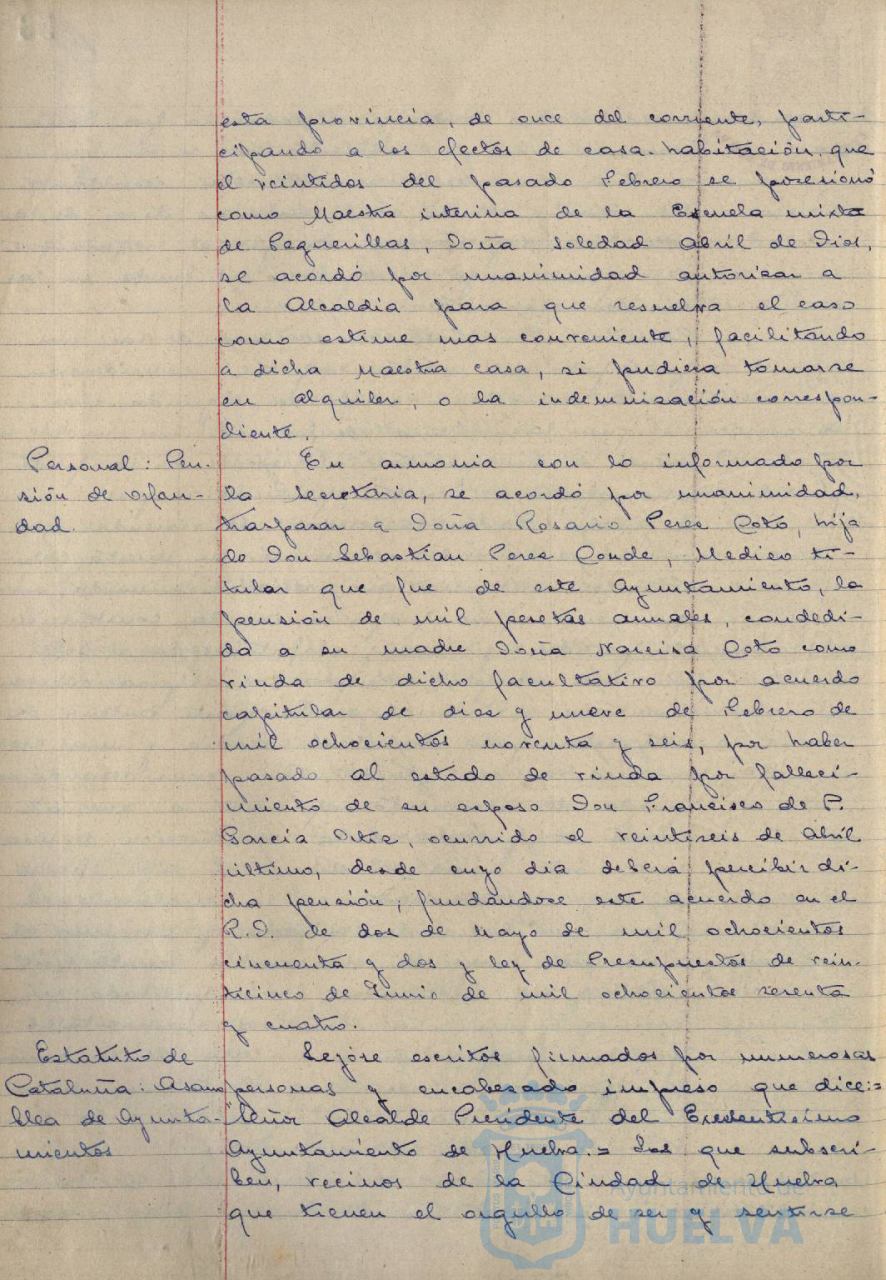 esta provincia, de once del corriente, parti-
cipando a los efectos de casa-habitación, que
el veintidos del pasado Febrero se posesionó
como Maestra interina de la Escuela mixta
de Peguerillas, Doña Soledad Abril de Dios,
se acordó por unanimidad autorizar a
la Alcaldia para que resuelva el caso
como estime mas conveniente, facilitando
a dicha Maestra casa, si pudiera tomarse
en alquiler, o la indemnización correspon-
diente.
Personal: Pen-
sión de orfan-
dad.
En armonia con lo informado por
la Secretaria, se acordó por unanimidad,
traspasar a Doña Rosario Perez Coto, hija
de Don Sebastian Perez Conde, Medico ti-
tular que fue de este Ayuntamiento, la
pensión de mil pesetas anuales, condedi-
da a su madre Doña Narcisa Coto como
viuda de dicho facultativo por acuerdo
capitular de diez y nueve de Febrero de
mil ochocientos noventa y seis, por haber
pasado al estado de viuda por falleci-
miento de su esposo Don Francisco de P.
García Ortiz, ocurrido el veintiseis de Abril
último, desde cuyo dia deberá percibir di-
cha pensión, fundándose este acuerdo en el
R.D. de dos de Mayo de mil ochocientos
cincuenta y dos y ley de Presupuestos de vein-
ticinco de Junio de mil ochocientos sesenta
y cuatro.
Estatuto de
Cataluña: Asam
blea de Ayunta-
mientos
Leyóse escritos firmados por numerosas
personas y encabezado impreso que dice:=
"Señor Alcalde Presidente del Excelentísimo
Ayuntamiento de Huelva.= Los que subscri-
ben, vecinos de la Ciudad de Huelva
que tienen el orgullo de ser y sentirse
Ayuntamiento de
HUELVA